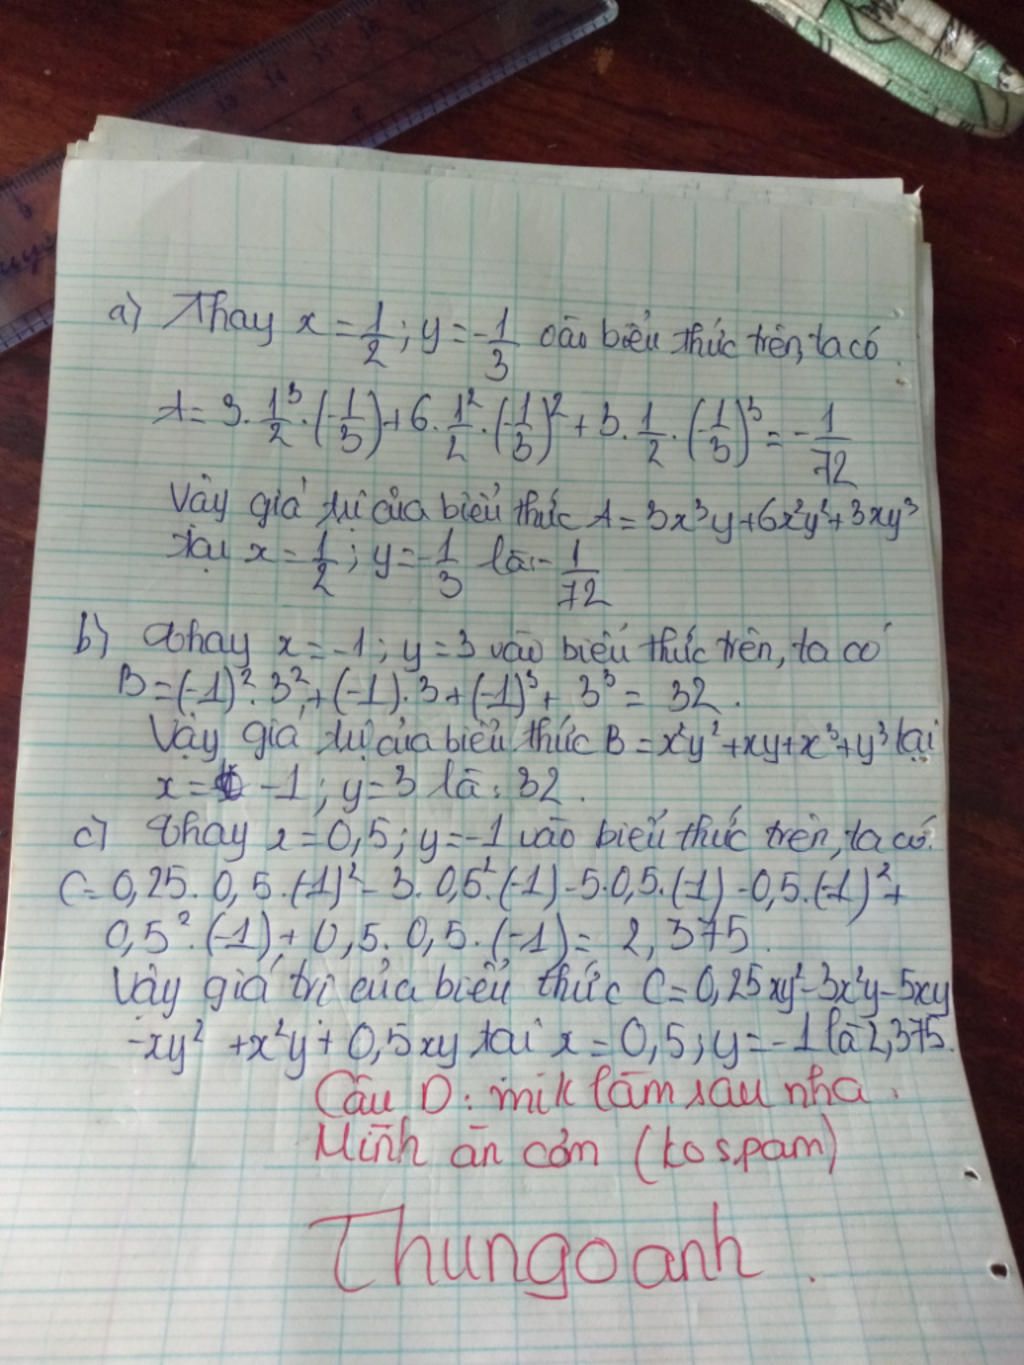 a) Thay x = 1/2 ; y = -1/3 vào biểu thức trên, ta có
A = 3 . 1³/2 . (-1/3) + 6 . 1²/2 . (-1/3)² + 3 . 1/2 . (-1/3)³ = -1/72
Vậy giá trị của biểu thức A = 3x³y + 6x²y² + 3xy³
tại x = 1/2 ; y = -1/3 là: -1/72
b) Thay x = -1 ; y = 3 vào biểu thức trên, ta có
B = (-1)² . 3² + (-1) . 3 + (-1)³ + 3³ = 32 .
Vậy giá trị của biểu thức B = x²y² + xy + x³ + y³ tại
x = -1 ; y = 3 là : 32 .
c) Thay x = 0,5 ; y = -1 vào biểu thức trên, ta có:
C = 0,25 . 0,5 . (-1)² - 3 . 0,5² . (-1) - 5 . 0,5 . (-1) - 0,5 . (-1)² +
0,5² . (-1) + 0,5 . 0,5 . (-1) = 2,375 .
Vậy giá trị của biểu thức C = 0,25xy² - 3x²y - 5xy
-xy² + x²y + 0,5xy tại x = 0,5 ; y = -1 là 2,375.
Câu D : mik làm sau nha .
Mình ăn cơm (ko spam)
Thungoanh .